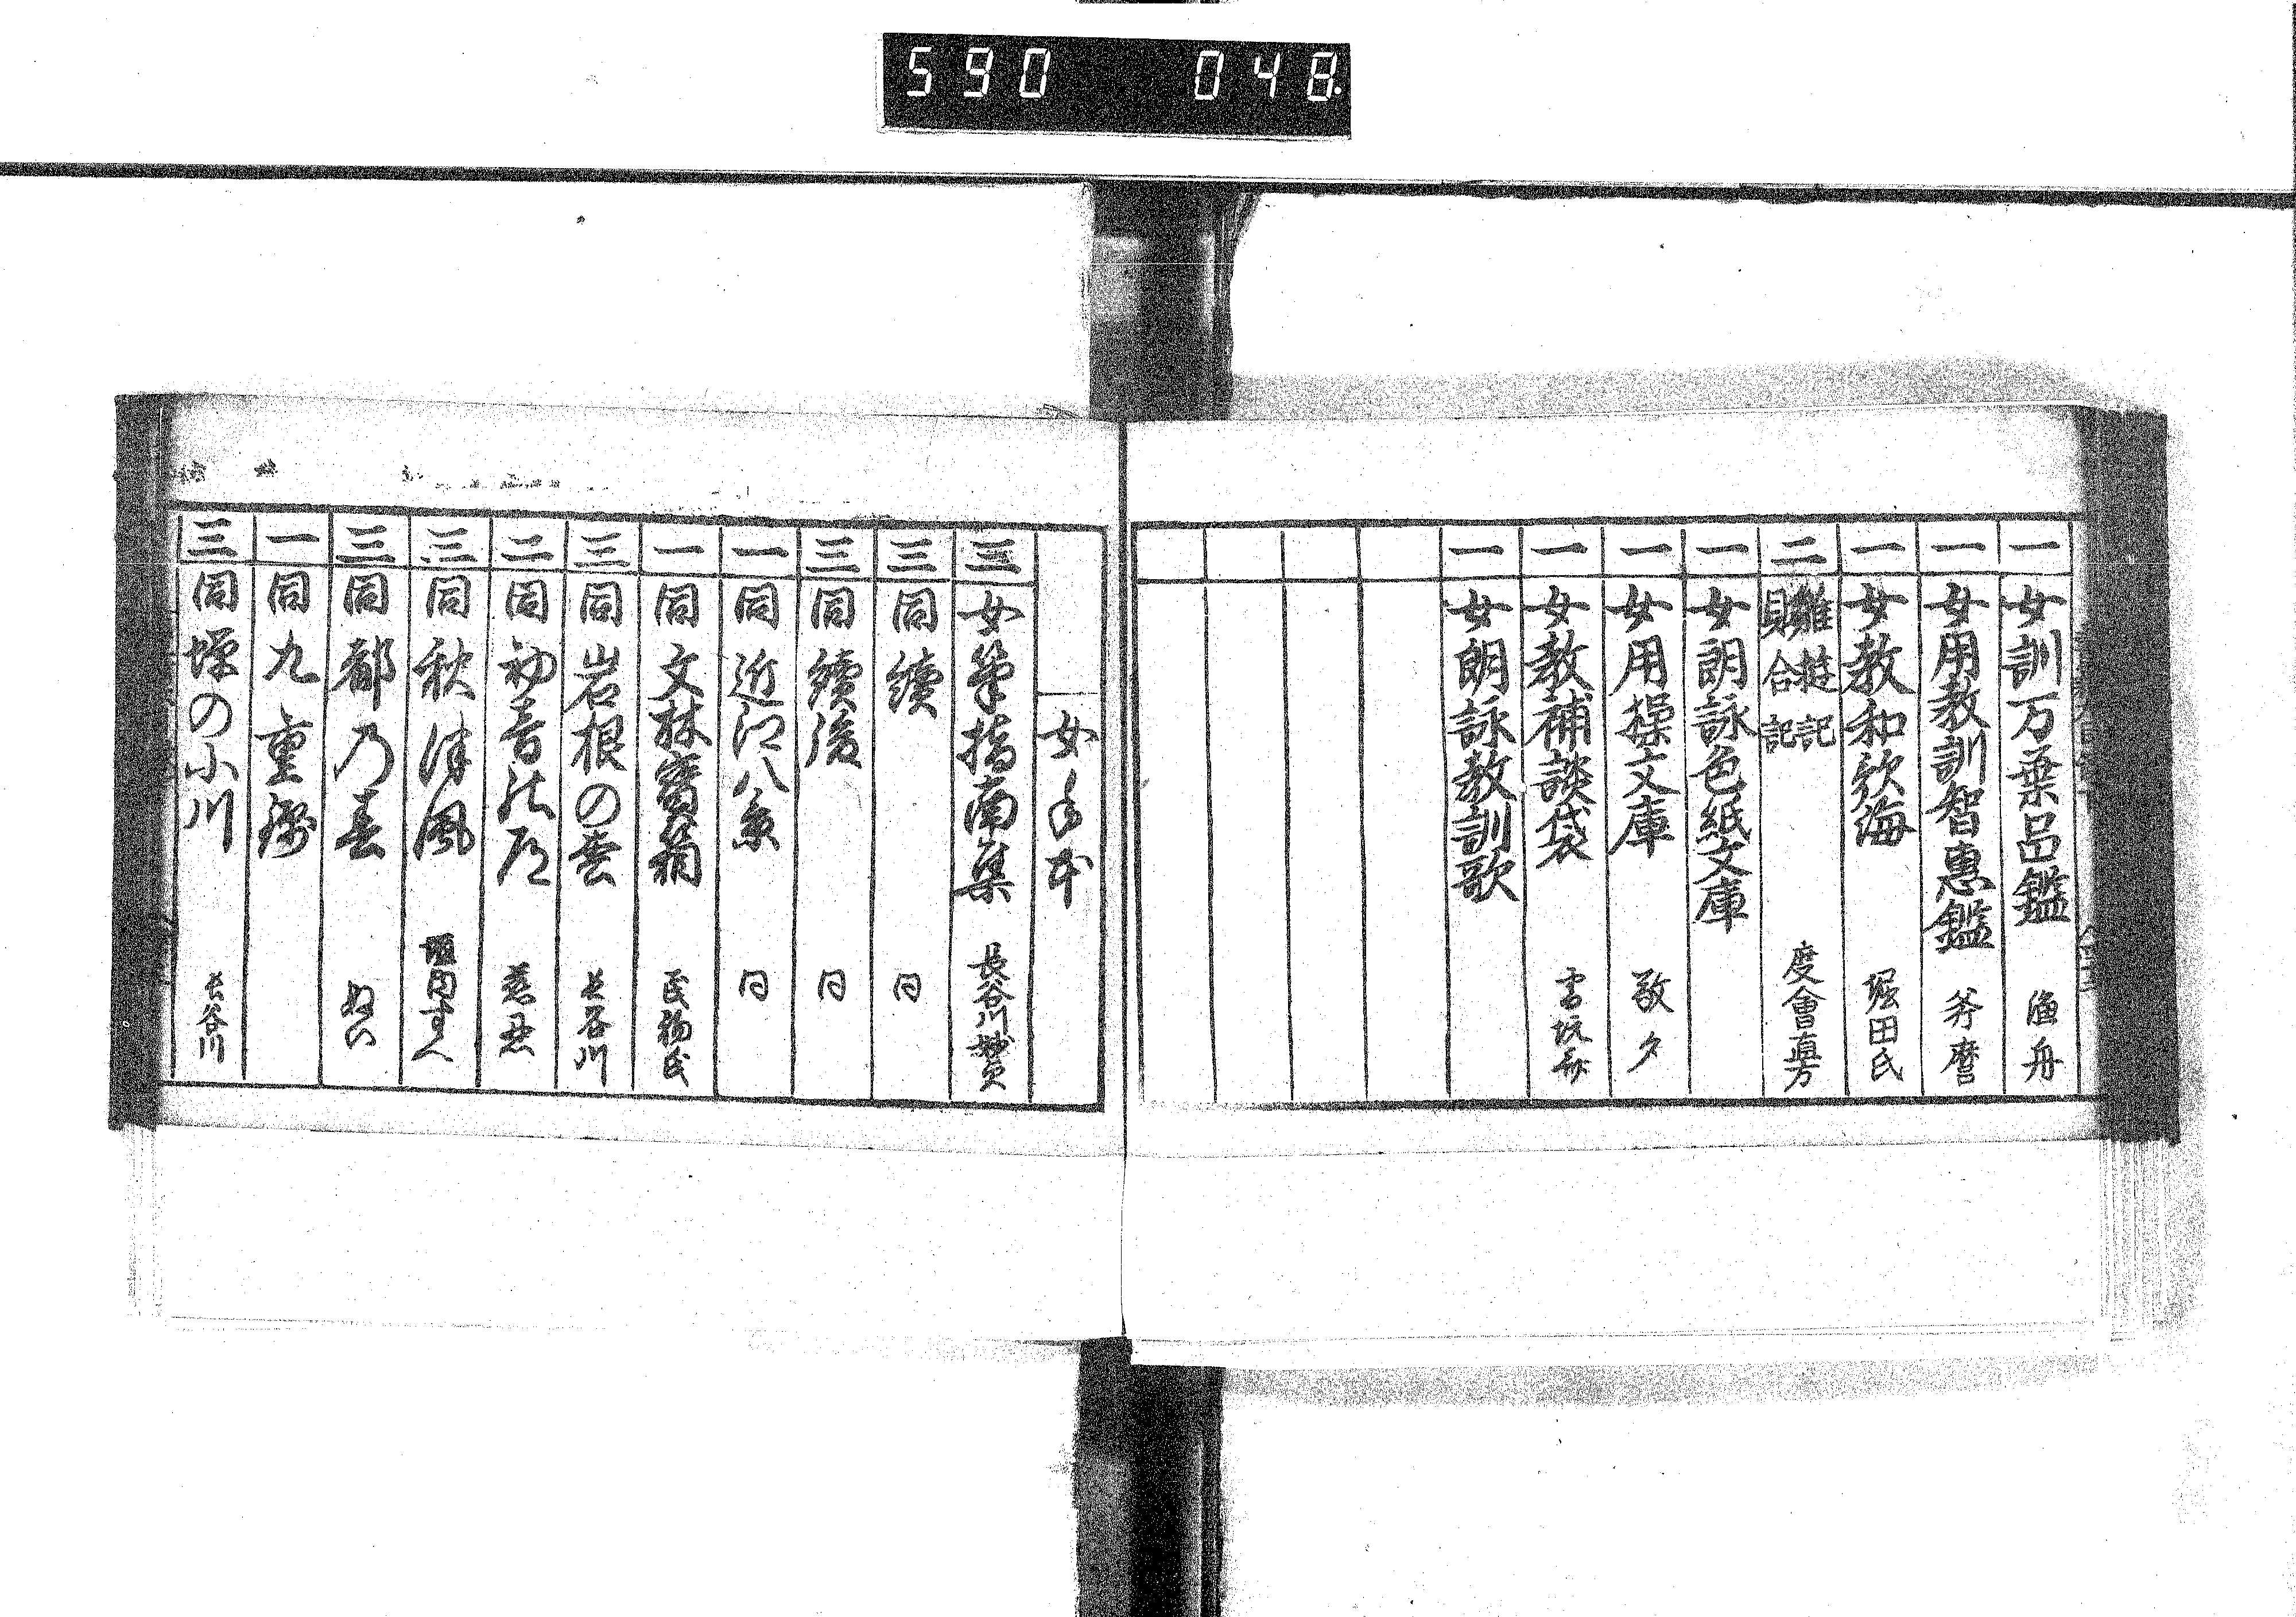 590 048
一 女訓万葉呂鑑 漁舟
一 女用教訓智惠鑑 斧麿
一 女教和歌海 堀田氏
二 雛遊記 貝合記 度會直方
一 女朗詠色紙文庫
一 女用操文庫 敬夕
一 女教補談袋
一 女朗詠教訓歌
女手本
三 女筆指南集 長谷川妙貞
三 同 續 同
三 同 續後 同
一 同 近江八景 同
一 同 文林寳箱
三 同 岩根の 長谷川
二 同 初音
三 同 秋津風
三 同 都乃春
一 同 九重
三 同 の小川 長谷川